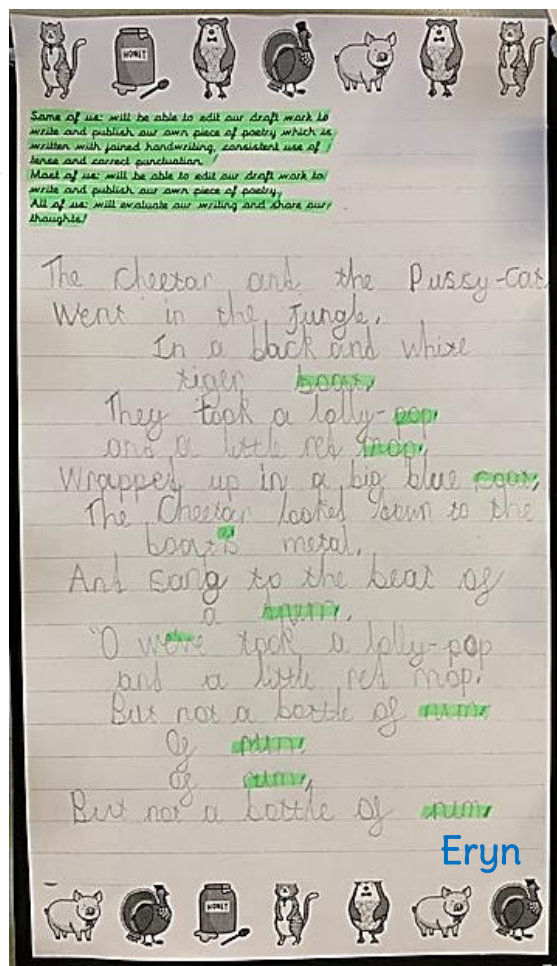 HONEY
Some of us: will be able to edit our draft work to
write and publish our own piece of poetry which is
written with joined handwriting, consistent use of
tense and correct punctuation.
Most of us: will be able to edit our draft work to
write and publish our own piece of poetry.
All of us: will evaluate our writing and share our
thoughts!
The Cheetar and the Pussy-Cat,
Went in the Jungle,
In a back and white
tiger boat,
They took a lolly-pop
and a little red mop,
Wrapped up in a big blue coat,
The Cheetar looked down to the
boat's metal,
And sang to the beat of
a drum,
"O we've took a lolly-pop
and a little red mop.
But not a bottle of rum,
Of rum,
of rum,
But not a bottle of rum,
Eryn
HONEY